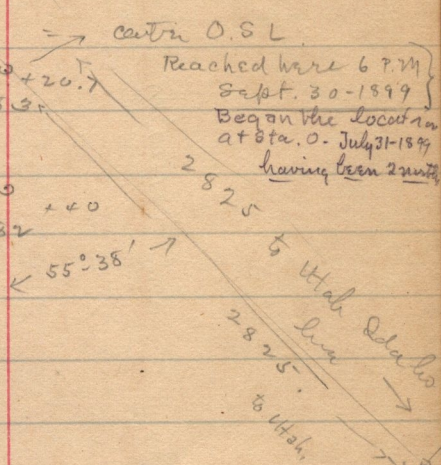 = centre O.S.L.
Reached here 6 P.M
Sept. 30-1899
+20.7
Began the location
at sta. 0. July 31-1899
having been 2 month
2825
+40
82
55°-38'
to Utah Idaho
line
2825
to Utah,